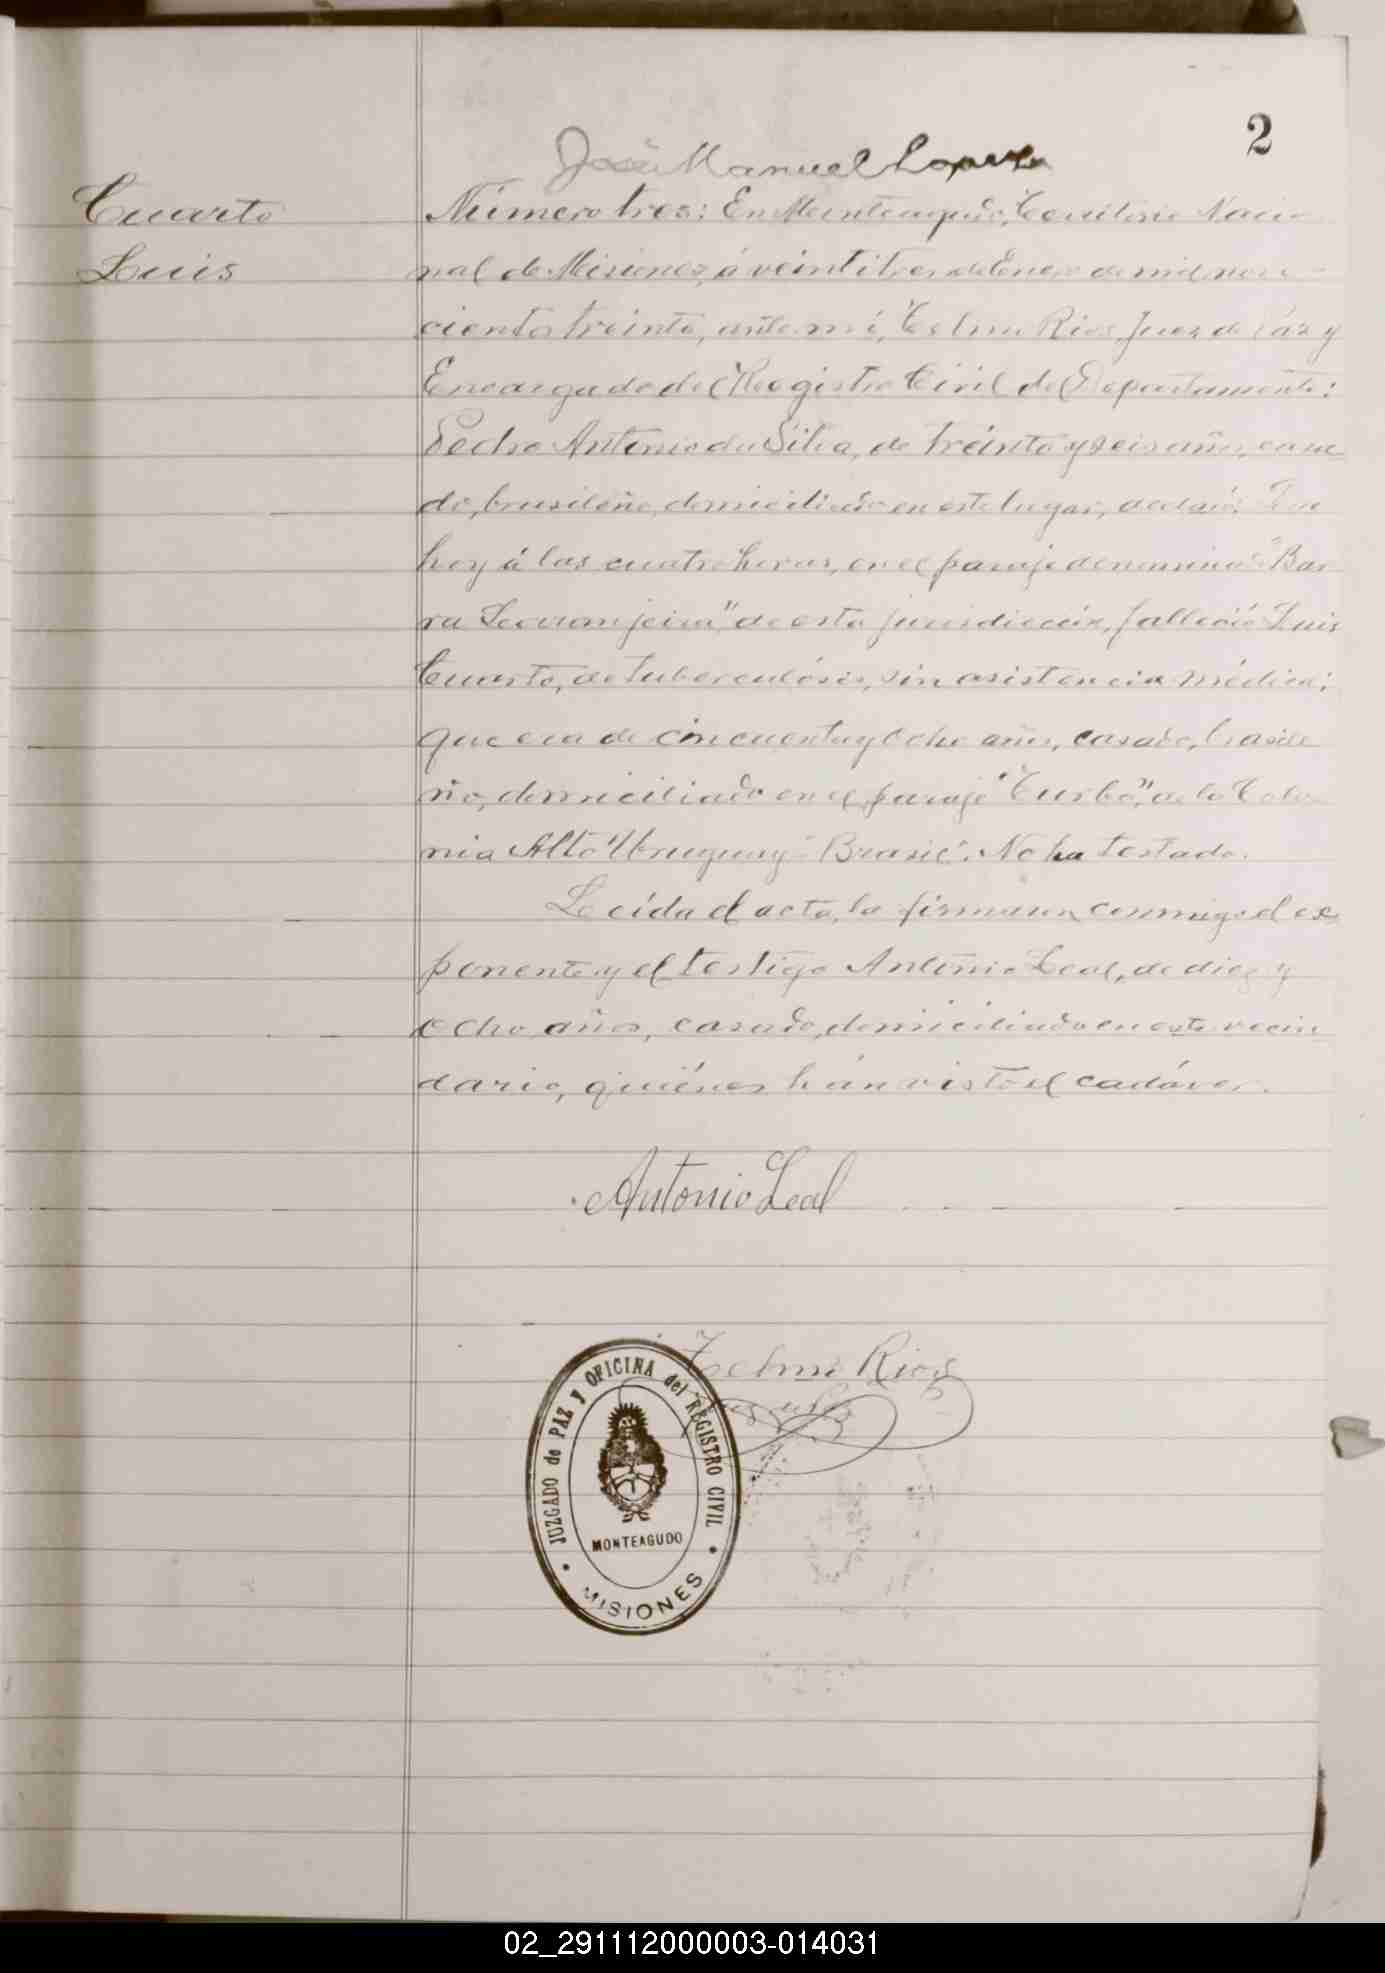 2
José Manuel Lopez
Cuarto
Luis
Número tres: En Monteagudo, Territorio Nacio
nal de Misiones, á veintitres de Enero de mil nove
cientos treinta, ante mí, Telmo Rios, Juez de Páz y
Encargado del Registro Civil del Departamento:
Pedro Antonio da Silva, de treinta y seis años, casa
do, brasileño, domiciliado en este lugar, declaró: Que
hoy á las cuatro horas, en el paraje denominado "Bar
ra " de esta jurisdicción, falleció Luis
Cuarto, de tuberculósis, sin asistencia médica;
que era de cincuenta y ocho años, casado, brasile
ño, domiciliado en el paraje "Turbo", de la Colo
nia Alto Uruguay - Brasil. No ha testado.
Leída el acta, la firmaron conmigo el ex
ponente y el testigo Antonio Leal, de diez y
ocho años, casado, domiciliado en este vecin
dario, quiénes hán visto el cadáver.
Antonio Leal
Telmo Rios
JUZGADO de PAZ y OFICINA del REGISTRO CIVIL
MONTEAGUDO
MISIONES
02_291112000003-014031